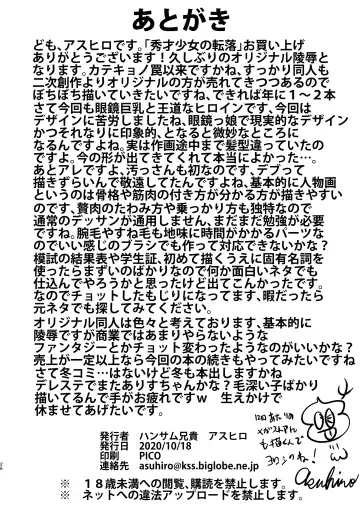 あとがき
ども、アスヒロです。「秀才少女の転落」お買い上げ
ありがとうございます！久しぶりのオリジナル陵辱と
なります。カテキョノ罠以来ですかね、すっかり同人も
二次創作よりオリジナルの方が売れてきつつあるので
ぼちぼち描いていきたいですね、できれば年に１〜２本
さて今回も眼鏡巨乳と王道なヒロインです、今回は
デザインに苦労しましたね、眼鏡っ娘で現実的なデザイン
かつそれなりに印象的、となると微妙なところに
なるんですよね。実は作画途中まで髪型違っていたの
ですよ。今の形が出てきてくれて本当によかった…。
あとアレですよ、汚っさんも初なのです、デブって
描きずらいんで敬遠してたんですよね、基本的に人物画
というのは骨格や筋肉の付き方が分かる方が描きやすい
のです、贅肉のたわみ方や乗っかり方も独特なので
通常のデッサンが通用しません、まだまだ勉強が必要
ですね。腕毛やすね毛も地味に時間がかかるパーツな
のでいい感じのブラシでも作って対応できないかな？
模試の結果表や学生証、初めて描くうえに固有名詞を
使ったらまずいのばかりなので何か面白いネタでも
仕込んでやろうかと思ったけど出てこんかったです。
なのでチョットしたもじりになってます、暇だったら
元ネタでも探してみてください。
オリジナル同人は色々と考えております、基本的に
陵辱ですが商業ではあまりやらないような
ファンタジーとかチョット変わったようなのがいいかな？
売上が一定以上なら今回の本の続きもやってみたいですね
さて冬コミ…はないけど冬も本出しますかね
デレステでまたありすちゃんかな？毛深い子ばかり
描いてるんで手がお疲れですｗ　生えかけで
休ませてあげたいです。
発行者　ハンサム兄貴　アスヒロ
発行日　2020/10/18
印刷　PICO
連絡先　asuhiro@kss.biglobe.ne.jp
asuhiro
※　１８歳未満への閲覧、購読を禁止します。
※　ネットへの違法アップロードを禁止します。